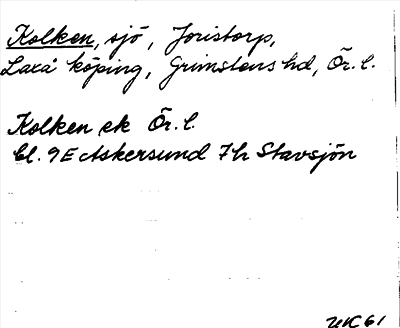 Kolken, sjö, Joristorp,
Laxå köping, Grimstens hd, Ör. l.
Kolken ek Ör. l.
bl. 9E Askersund 7h Stavsjön
61